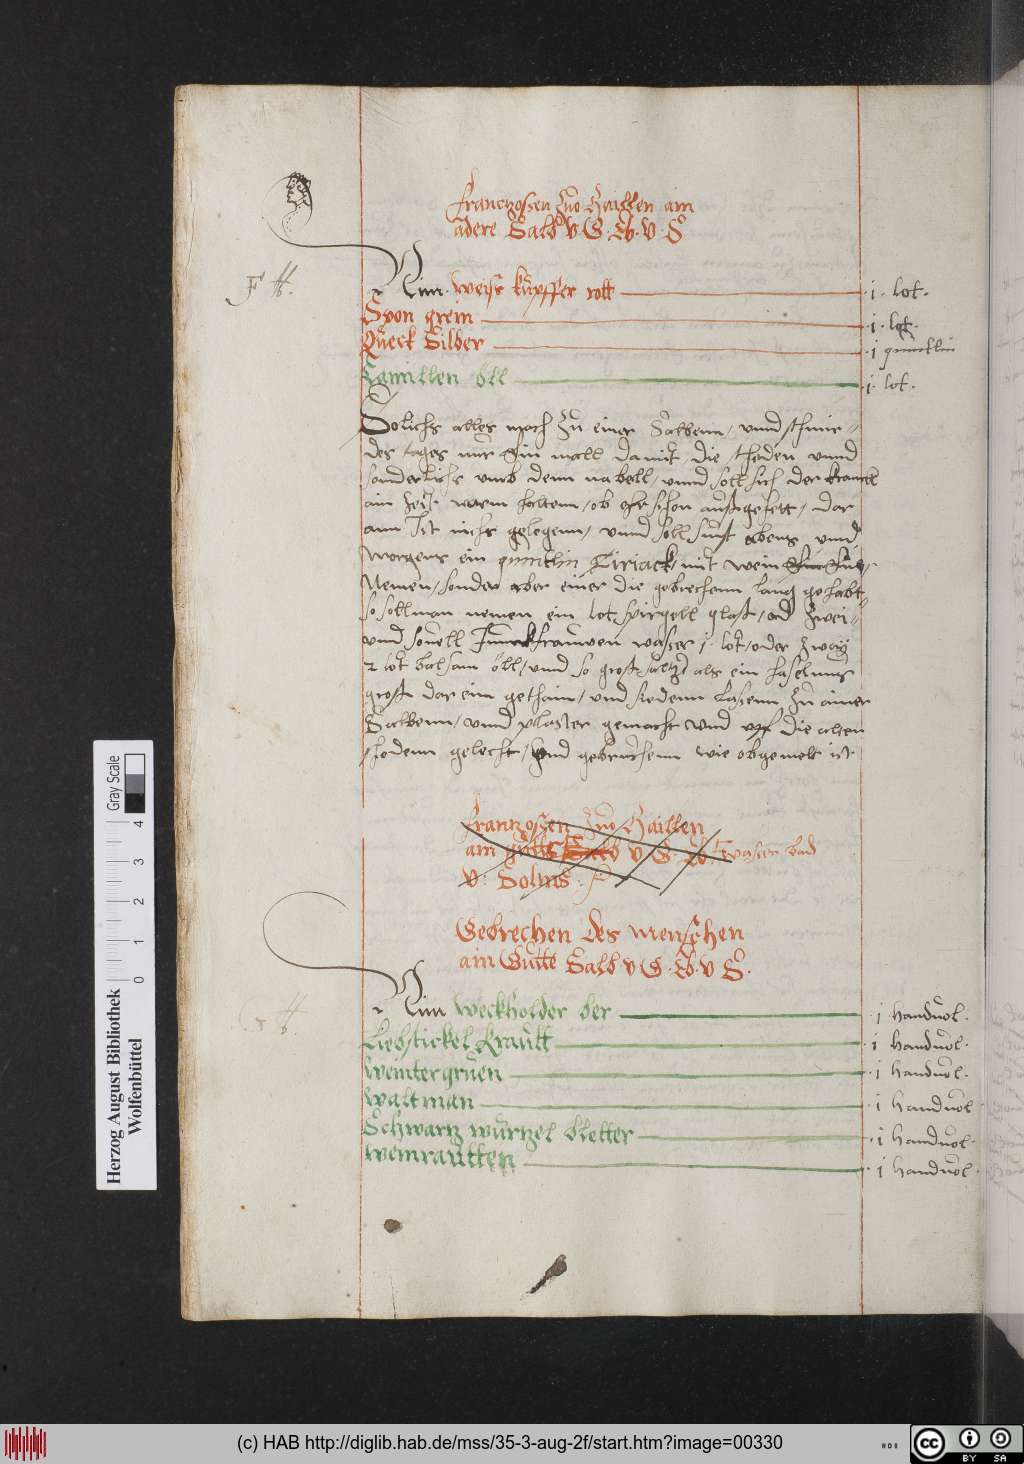 Franczosen Zuo Haillen ain
adere Salb v G. Eb. v. S
Nim weiss kupffer rott i. lot.
Spon grein i. lot.
Queck Silber i quintlin
Camillen öll i. lot.
Solichs alles mach Zu einer Salbenn, vnnd schmir
des tages nur Ein mall damit die scheden vnnd
sonderlichs vmb denn nabell, vnnd soll sich der kranck
ain Zeit warm haltenn, ob ehr schon aussgefert, dar
ann Ist nichs gelegenn, vnnd soll sunst abens vnnd
morgens ein quintlin Tiriack, mit wein
Nemen, sonder aber einer die gebrechenn lang gehabt
so soll man nemen ein lot spiegell glass, od Zwei
vnnd souell Junckfrauwen wasser i. lot, oder Zway
2 lot balsam öll, vnnd so gross saltz als ein haselnuss
gross dar ein gethain, vnd siedenn lassenn Zu ainer
Salbenn, vnnd plaster gemacht vnd vff die alten
schedenn gelecht, vnd gebruchenn wie obgemelt ist
Franzosen Zuo Haillen
ain guts v G. Eb wasser bad
v. Solms
Gebrechen des menschen
ain Gutte Salb v G. Eb. v S.
Nim weckholder ber i handuol.
Liebstickel Krautt i handuol.
Weintergruen i handuol.
Waltman i handuol
Schwartz wurtzel bletter i handuol.
Weinrautten i handuol
Herzog August Bibliothek
Wolfenbüttel
0 1 2 3 4
Gray Scale
(c) HAB http://diglib.hab.de/mss/35-3-aug-2f/start.htm?image=00330
cc BY SA